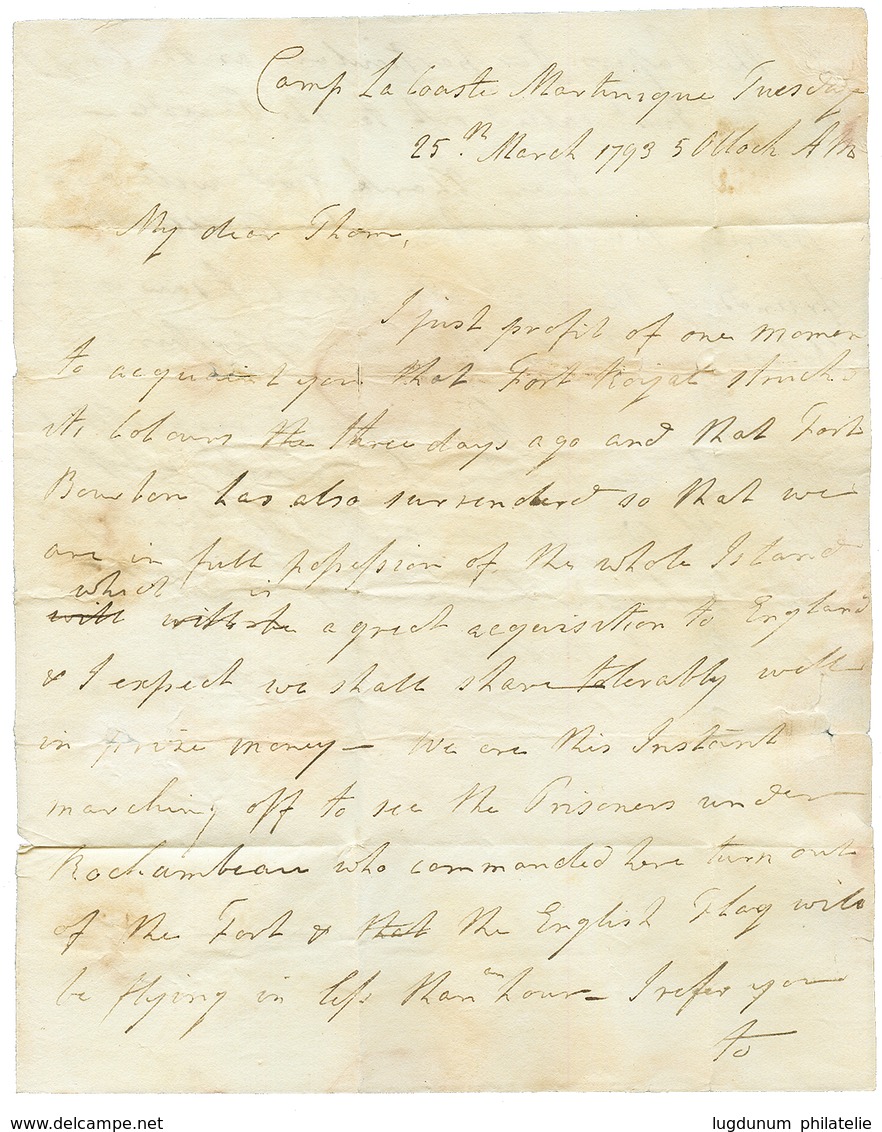 Camp La Coaste Martinique Tuesday
25.th March 1793 5 OClock AM
My dear Thom,
I just profit of one momen
to acquaint you that Fort Royal struck
its Colours the three days ago and that Fort
Bourbon has also surrendered so that we
are in full possession of the whole Island
which is
will will be a great acquisition to England
& I expect we shall share tolerably well
in prize money — We are this Instant
marching off to see the Prisoners under
Rochambeau who commanded here turn out
of the Fort & that the English Flag will
be flying in less than an hour — I refer you
to
www.delcampe.net
lugdunum philatelie